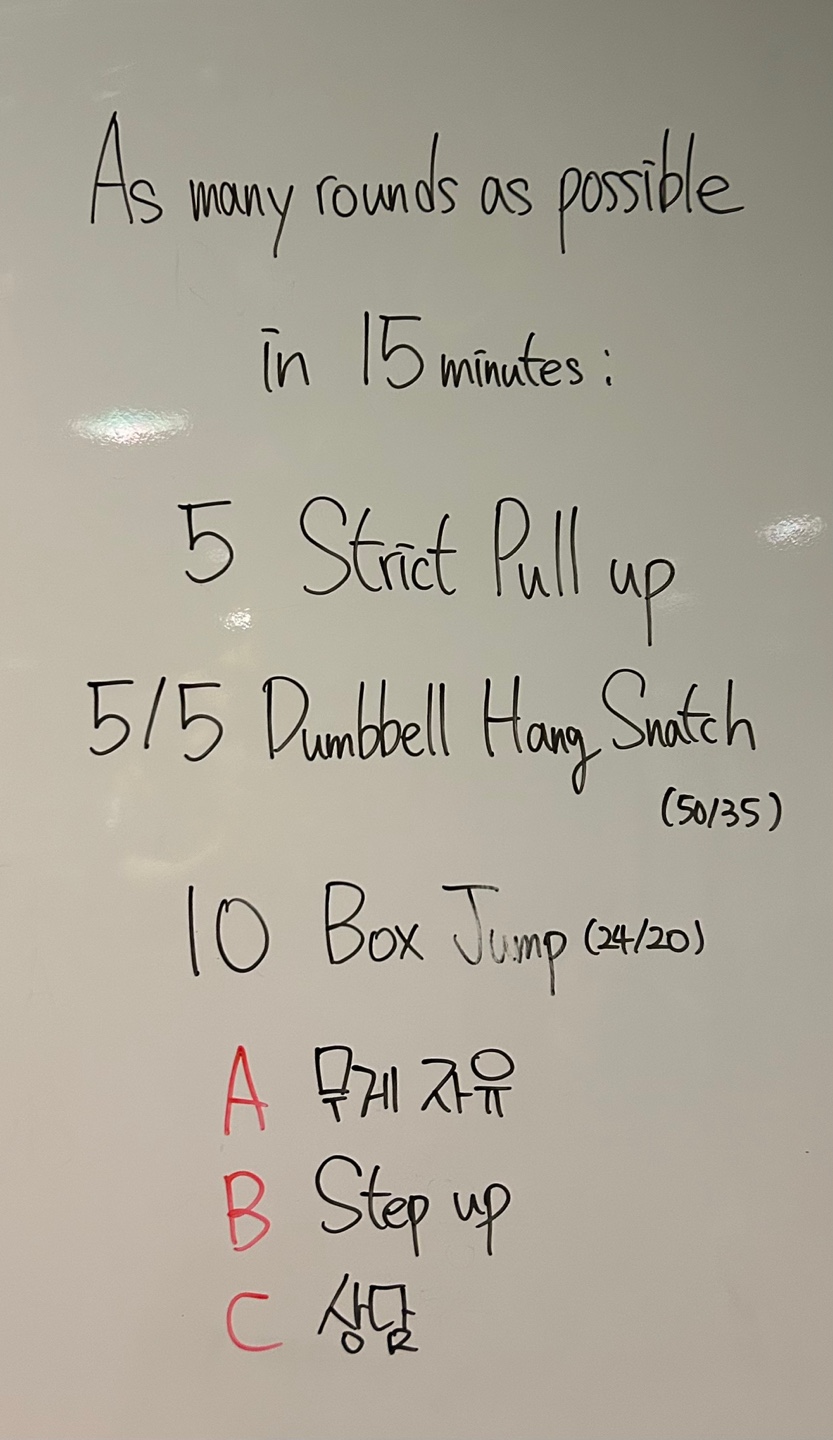 As many rounds as possible
in 15 minutes:
5 Strict Pull up
5/5 Dumbbell Hang Snatch
(50/35)
10 Box Jump (24/20)
A 무게 자유
B Step up
C 상담